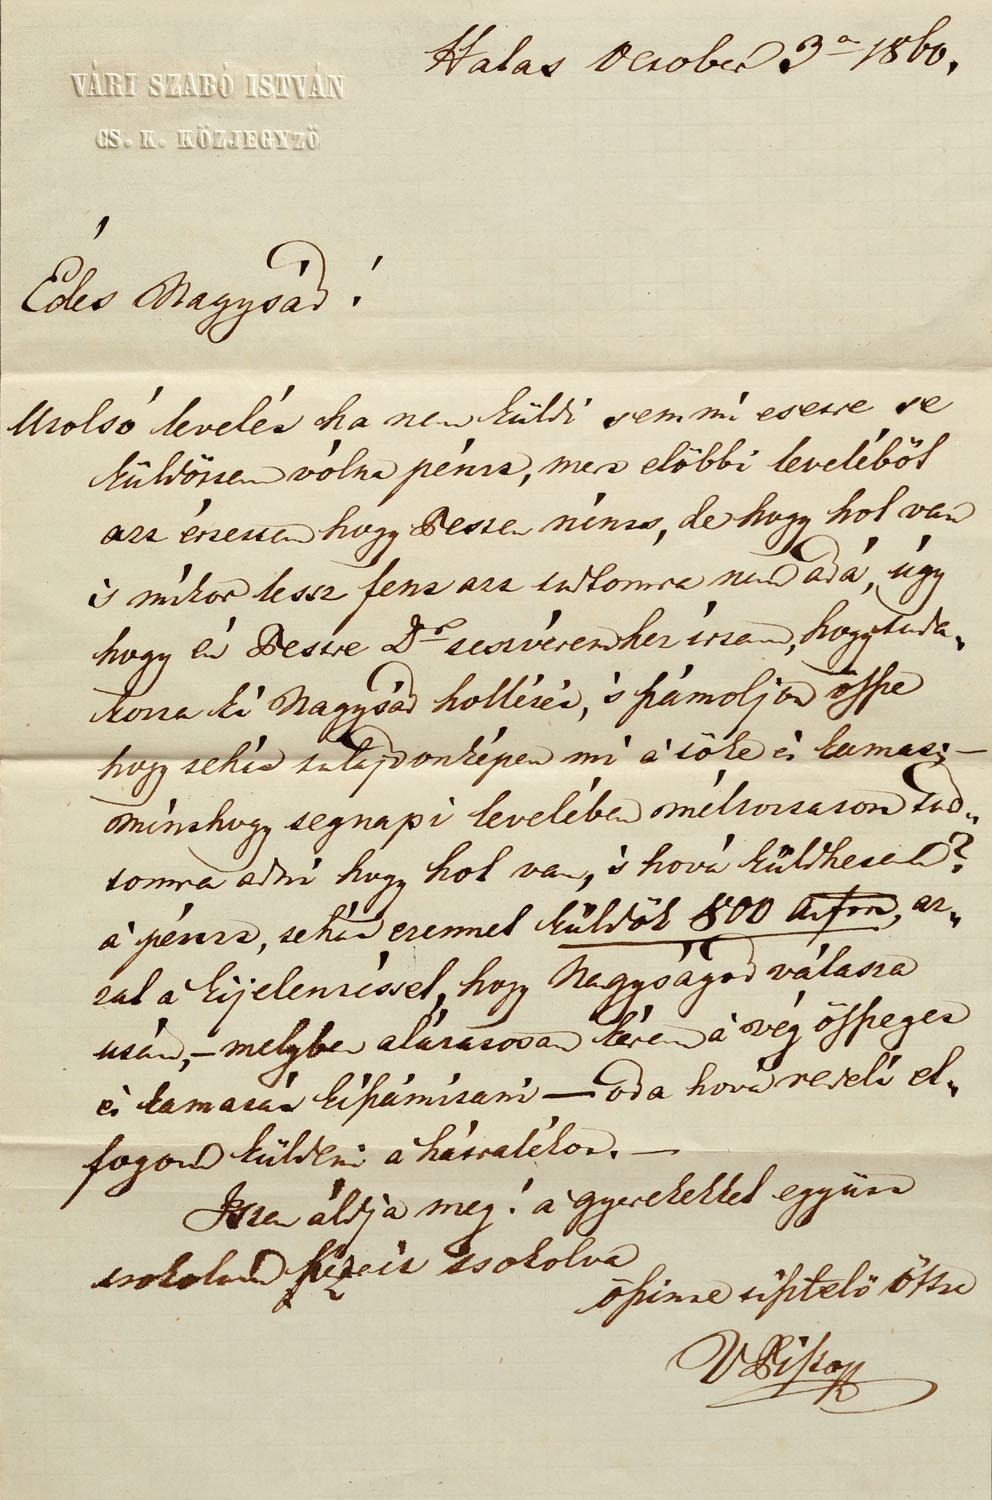 VÁRI SZABÓ ISTVÁN
CS. K. KÖZJEGYZŐ
Halas October 3ª 1860.
Édes Nagysád!
Utolsó levelét ha nem küldi semmi esetre se
küldöttem vólna pénzt, mert előbbi leveléből
azt értettem hogy Pesten nints, de hogy hol van
's mikor lessz fenn azt tudtomra nem adá, úgy
hogy én Pestre Dr testvéremhez írtam, hogy tuda„
kozza ki Nagysád hollétét, 's számoljon össze
hogy tehát tulajdonképen mi a töke és kamat; —
minthogy tegnapi levelében méltoztatott tud„
tomra adni hogy hol van, 's hová küldhetem?
a pénzt, tehát ezennel küldök 800 , az„
zal a kijelentéssel, hogy Nagyságod válasza
után, – melyben alázatosan kérem a vég összeget
és kamatát kiszámítani — oda hová rendeli el„
fogom küldeni a hátralékot. —
Isten áldja meg! a gyerekekkel együtt
tsokolom tsokolva
öszinte tisztelö öttse